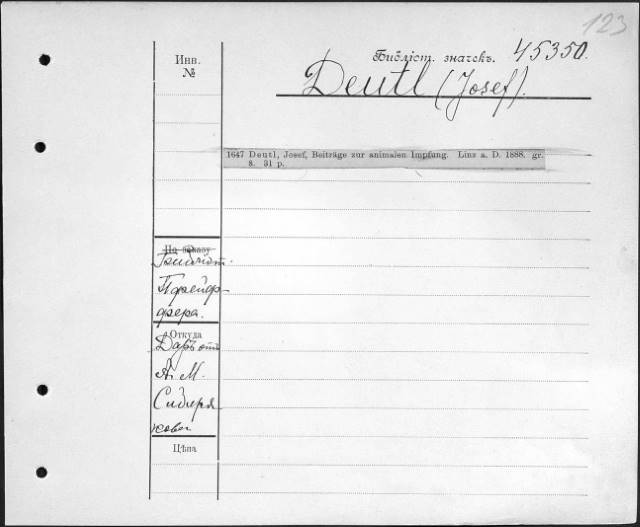 123
Инв.
№
Библіот. значекъ. 45350.
Deutl (Josef).
1647 Deutl, Josef, Beiträge zur animalen Impfung. Linz a. D. 1888. gr.
8. 31 p.
По заказу
Библіот.
Пфейф-
фера.
Откуда
Даръ отъ
А. М.
Сибиря-
кова
Цѣна